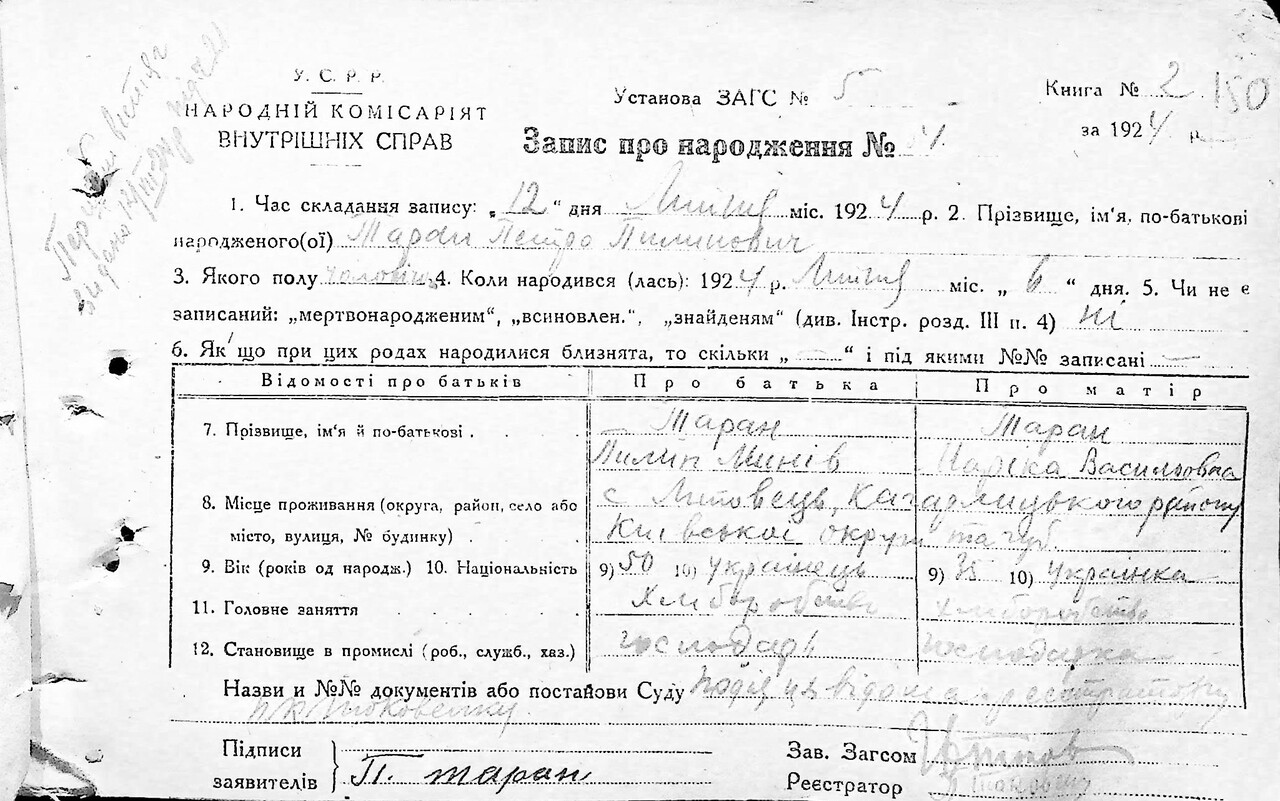 У. С. Р. Р.
НАРОДНІЙ КОМІСАРІЯТ
ВНУТРІШНІХ СПРАВ
Установа ЗАГС № 5
Книга № 2
150
за 1924 р.
Запис про народження №
1. Час складання запису: „12“ дня Липня міс. 1924 р. 2. Прізвище, ім'я, по-батькові
народженого(ої) Таран Петро Пилипович
3. Якого полу чоловіч. 4. Коли народився (лась): 1924 р. Липня міс. „6“ дня. 5. Чи не є
записаний: „мертвонародженим“, „всиновлен.“, „знайденям“ (див. Інстр. розд. III п. 4) ні
6. Як'що при цих родах народилися близнята, то скільки „—“ і під якими №№ записані —
Відомості про батьків Про батька Про матір
7. Прізвище, ім'я й по-батькові Таран Таран
Пилип Минів Василовна
8. Місце проживання (округа, район, село або с Липовець, Кагарлицького району
місто, вулиця, № будинку) Київської округи та губ.
9. Вік (років од народж.) 10. Національність 9) 50 10) українець 9) 35 10) українка
11. Головне заняття Хліборобство хліборобство
12. Становище в промислі (роб., служб., хаз.) господарь господарка
Назви и №№ документів або постайови Суду Подія ця відома реєстратору
Підписи
заявителів П. таран
Зав. Загсом
Реєстратор